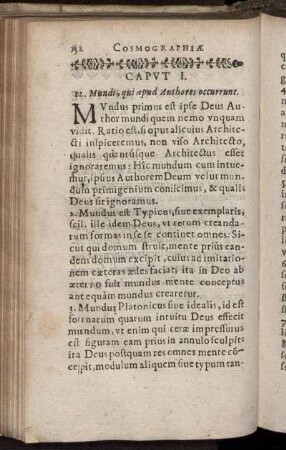 152 COSMOGRAPHIÆ
CAPVT I.
12. Mundi, qui apud Authores occurrunt.
MVndus primus est ipse Deus Au-
thor mundi quem nemo vnquam
vidit. Ratio est, si opus alicuius Archite-
cti inspiceremus, non viso Architecto,
qualis quantúsque Architectus esset
ignoraremus: Hîc mundum cum intue-
mur, ipsius Authorem Deum velut mun-
dum primigenium conijcimus, & qualis
Deus sit ignoramus.
2. Mundus est Typicus, siue exemplaris,
scil. ille idem Deus, vt rerum creanda-
rum formas in se se continet omnes: Si-
cut qui domum struit, mente priùs ean-
dem domum excipit, cuius ad imitatio-
nem cæteras ædes faciat: ita in Deo ab
æterno fuit mundus mente conceptus
antequàm mundus crearetur.
3. Mundus Platonicus siue idealis, id est
formarum quarum intuitu Deus effecit
mundum, vt enim qui ceræ impressurus
est figuram eam prius in annulo sculpsit:
ita Deus postquam res omnes mente cō-
cepit, modulum aliquem siue typum tan-